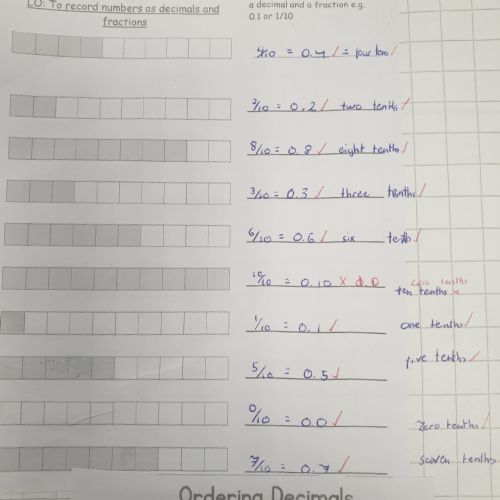 LO: To record numbers as decimals and fractions
a decimal and a fraction e.g.
0.1 or 1/10
4/10 = 0.4 ✓ = four ✓
2/10 = 0.2 ✓ two tenths ✓
8/10 = 0.8 ✓ eight tenths ✓
3/10 = 0.3 ✓ three tenths ✓
6/10 = 0.6 ✓ six tenths ✓
10/10 = 0.10 x
zero tenths
ten tenths x
1/10 = 0.1 ✓ one tenths ✓
5/10 = 0.5 ✓ five tenths ✓
0/10 = 0.0 ✓ zero tenths ✓
7/10 = 0.7 ✓ seaven tenths
Ordering Decimals